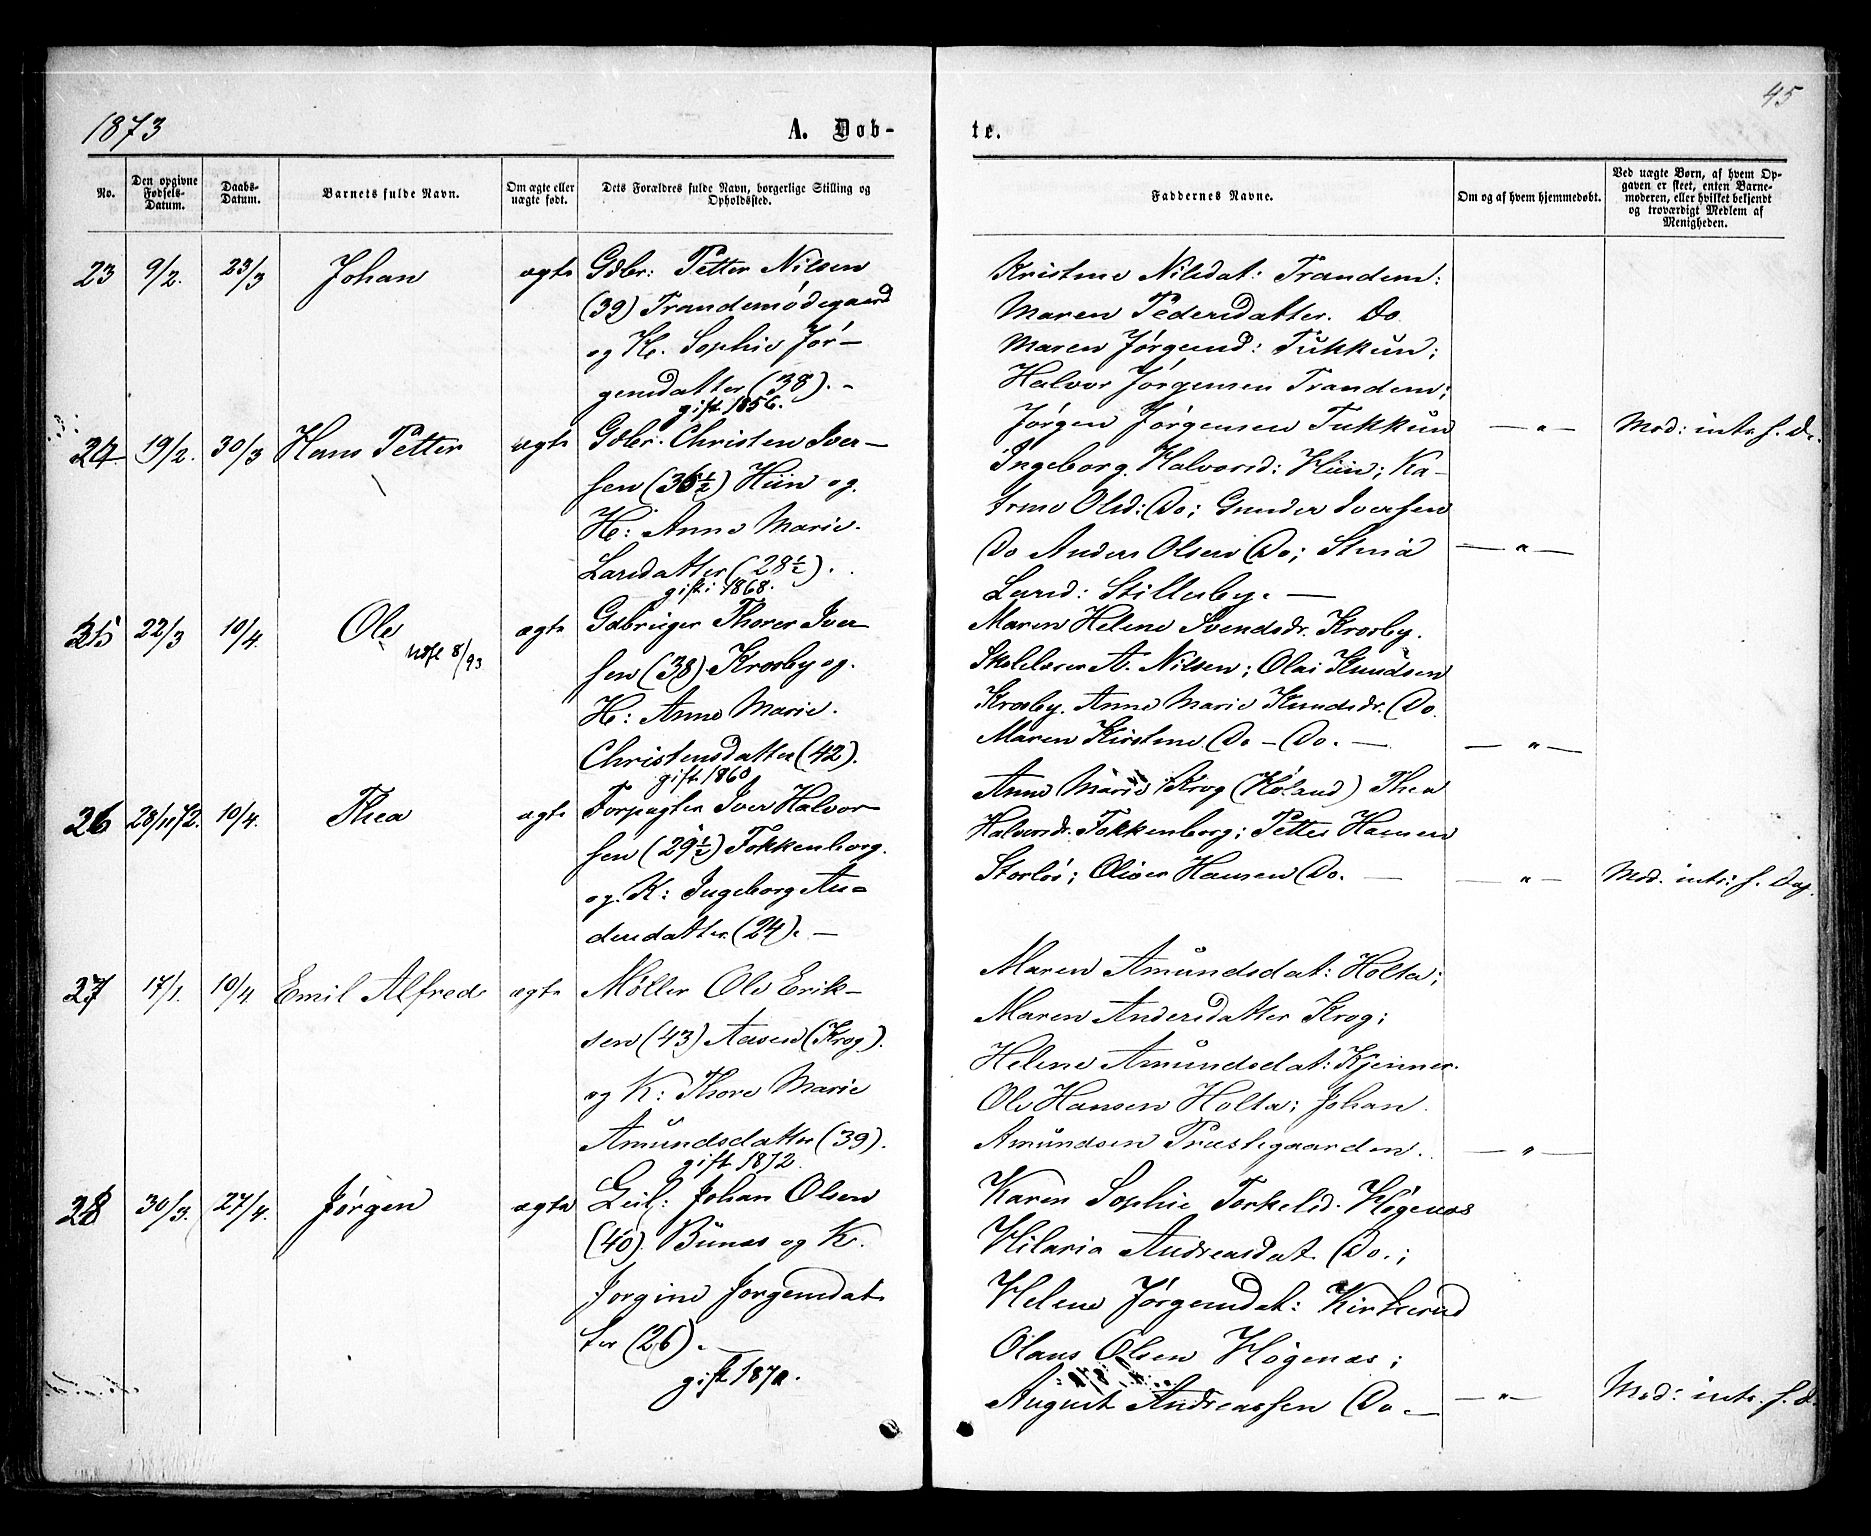 45
1873
A. Døb-
te.
No.
Den opgivne Fødsels-Datum.
Daabs-Datum.
Barnets fulde Navn.
Om ægte eller uægte født.
Dets Forældres fulde Navn, borgerlige Stilling og Opholdssted.
Faddernes Navne.
Om og af hvem hjemmedøbt.
Ved uægte Børn, af hvem Op-
gaven er skeet, enten Barne-
moderen, eller hvilket bekjendt
og troværdigt Medlem af
Menigheden.
23 9/2. 23/3 Johan ægte Gdbr: Petter Nilsen
(39) Trandemødegaard
og K. Sophie Jør-
gensdatter (38). -
gift 1856.
Kristine Nilsdat: Trandem:
Maren Pedersdatter. Do
Maren Jørgensd: Tukkun;
Halvor Jørgensen Trandem;
Jørgen Jørgensen Tukkun — " — Mod: intr. f. D.
24. 19/2. 30/3 Hans Petter ægte Gdbr. Christen Iver-
sen (36½) Hiin og
H: Anne Marie
Larsdatter (28½).
gift: 1868.
Ingeborg Halvorsd: Hiin; Ka-
trine Olsd: Do; Gunder Iversen
Do Anders Olsen Do; Stina — " —
Larsd: Stillesby. —
25 22/3 10/4. Ole ægte Gdbruger Thorer Iver-
8/93
sen (38) Krosby og
H: Anne Marie
Christensdatter (42).
gift 1860
Maren Helene Svendsdr. Krosby.
Skolelærer A. Nilsen; Olai Knudsen
Krosby. Anne Marie Knudsdr. Do.
Maren Kirstine Do - Do. — — " —
26 28/11 72. 10/4. Thea ægte Forpagter Iver Halvor-
sen (29½) Fokkenborg.
og K: Ingeborg An-
dersdatter (24). —
Anne Marie Krog (Høland) Thea
Halvorsdr. Fokkenborg; Petter Hansen
Storløs; Oliver Hansen Do. — — " — Mod. intr: f. Daf.
27 17/1. 10/4 Emil Alfred ægte Møller Ole Erik-
sen (43) Aasen (Krog).
og K: Thore Marie
Amundsdatter (39).
gift 1872.
Maren Amundsdat: Holta;
Maren Andersdatter Krog;
Helene Amundsdat: Kjenner.
Ole Hansen Holta; Johan
Amundsen Præstegaarden. — " —
28 30/3. 27/4. Jørgen ægte Leil: Johan Olsen
(40). Bunæs og K.
Jorgine Jorgensdat-
ter (26). —
gift 1870.
Karen Sophie Torkelsd. Høgenæs
Hilaria Andreasdat. Do.;
Helene Jørgensdat: Kirkerud
Olaus Olsen Høgenæs;
August Andreassen Do — — " — Mod: intr. f. D.